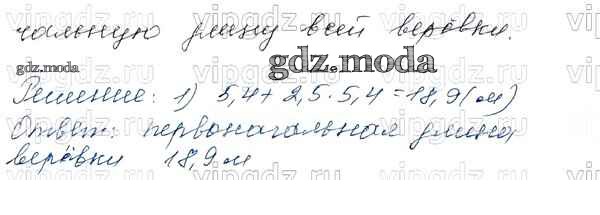 чальную длину всей верёвки.
gdz.moda
gdz.moda
Решение: 1) 5,4 + 2,5 · 5,4 = 18,9 (м)
Ответ: первоначальная длина
верёвки 18,9 м